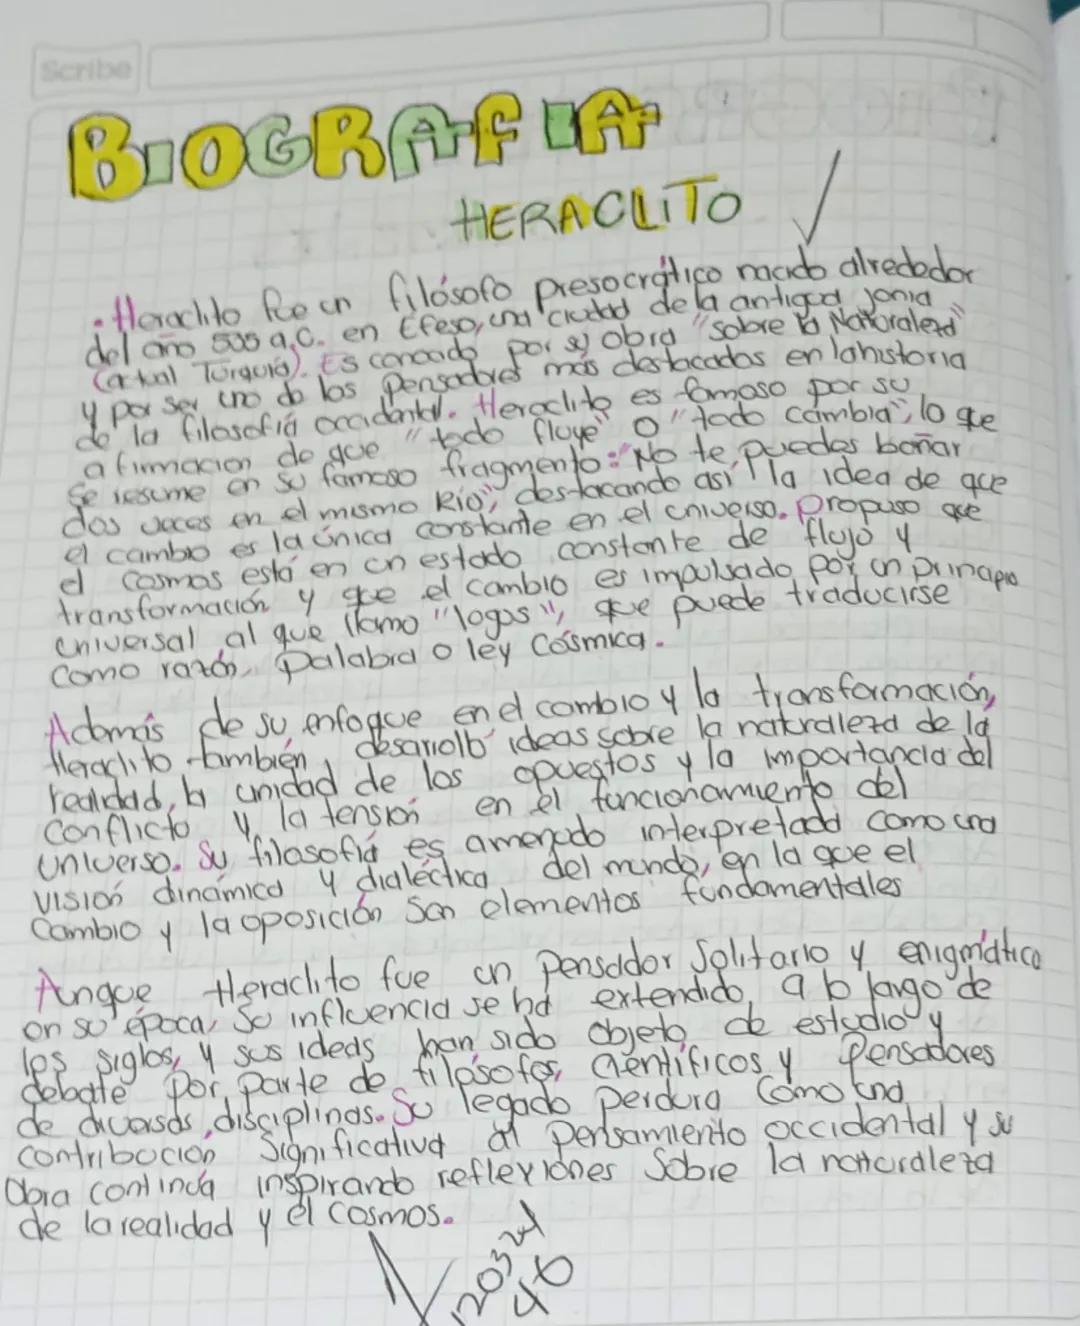 Scribe
BIOGRAFIA
HERACLITO
• Heraclito fue un filósofo presocrático nacido alrededor
del año 535 a.C. en Efeso, una ciudad de la antigua Jonia
(actual Turquía). Es conocido por su obra "sobre la Naturaleza"
y por ser uno de los pensadores más destacados en la historia
de la filosofía occidental. Heraclito es famoso por su
afirmación de que "todo fluye" o "todo cambia", lo que
se resume en su famoso fragmento: "No te puedes bañar
dos veces en el mismo Río", destacando así la idea de que
el cambio es la única constante en el universo. Propuso que
el cosmos está en un estado constante de flujo y
transformación y que el cambio es impulsado por un principio
universal al que llamo "logos", que puede traducirse
como razón, palabra o ley cósmica.
Además de su enfoque en el cambio y la transformación,
Heraclito también desarrolló ideas sobre la naturaleza de la
realidad, la unidad de los opuestos y la importancia del
conflicto y la tensión en el funcionamiento del
universo. Su filosofía es amenudo interpretada como una
visión dinámica y dialéctica del mundo, en la que el
cambio y la oposición son elementos fundamentales
Aunque Heraclito fue un pensador solitario y enigmático
en su época, su influencia se ha extendido a lo largo de
los siglos, y sus ideas han sido objeto de estudio y
debate por parte de filósofos, científicos y pensadores
de diversas disciplinas. Su legado perdura como una
contribución significativa al pensamiento occidental y su
obra continúa inspirando reflexiones sobre la naturaleza
de la realidad y el cosmos.